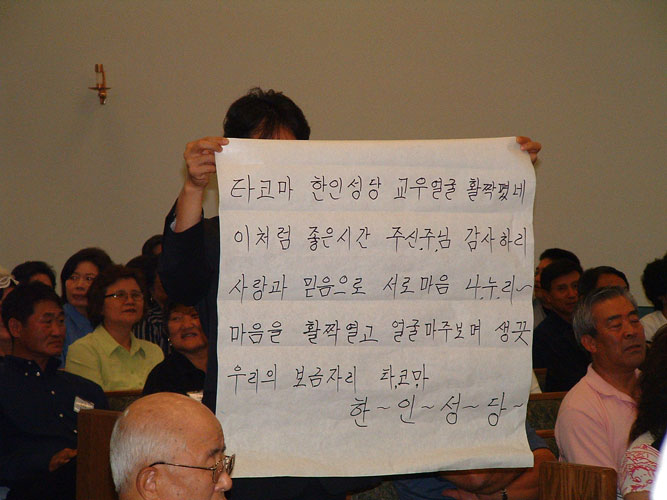 타코마 한인성당 교우얼굴 활짝폈네
이처럼 좋은시간 주신.주.님 감사하리
사랑과 믿음으로 서로마음 나.누.리~
마음을 활짝열고 얼굴마주보며 생끗
우리의 보금자리 타.코.마.
한~인~성~당~